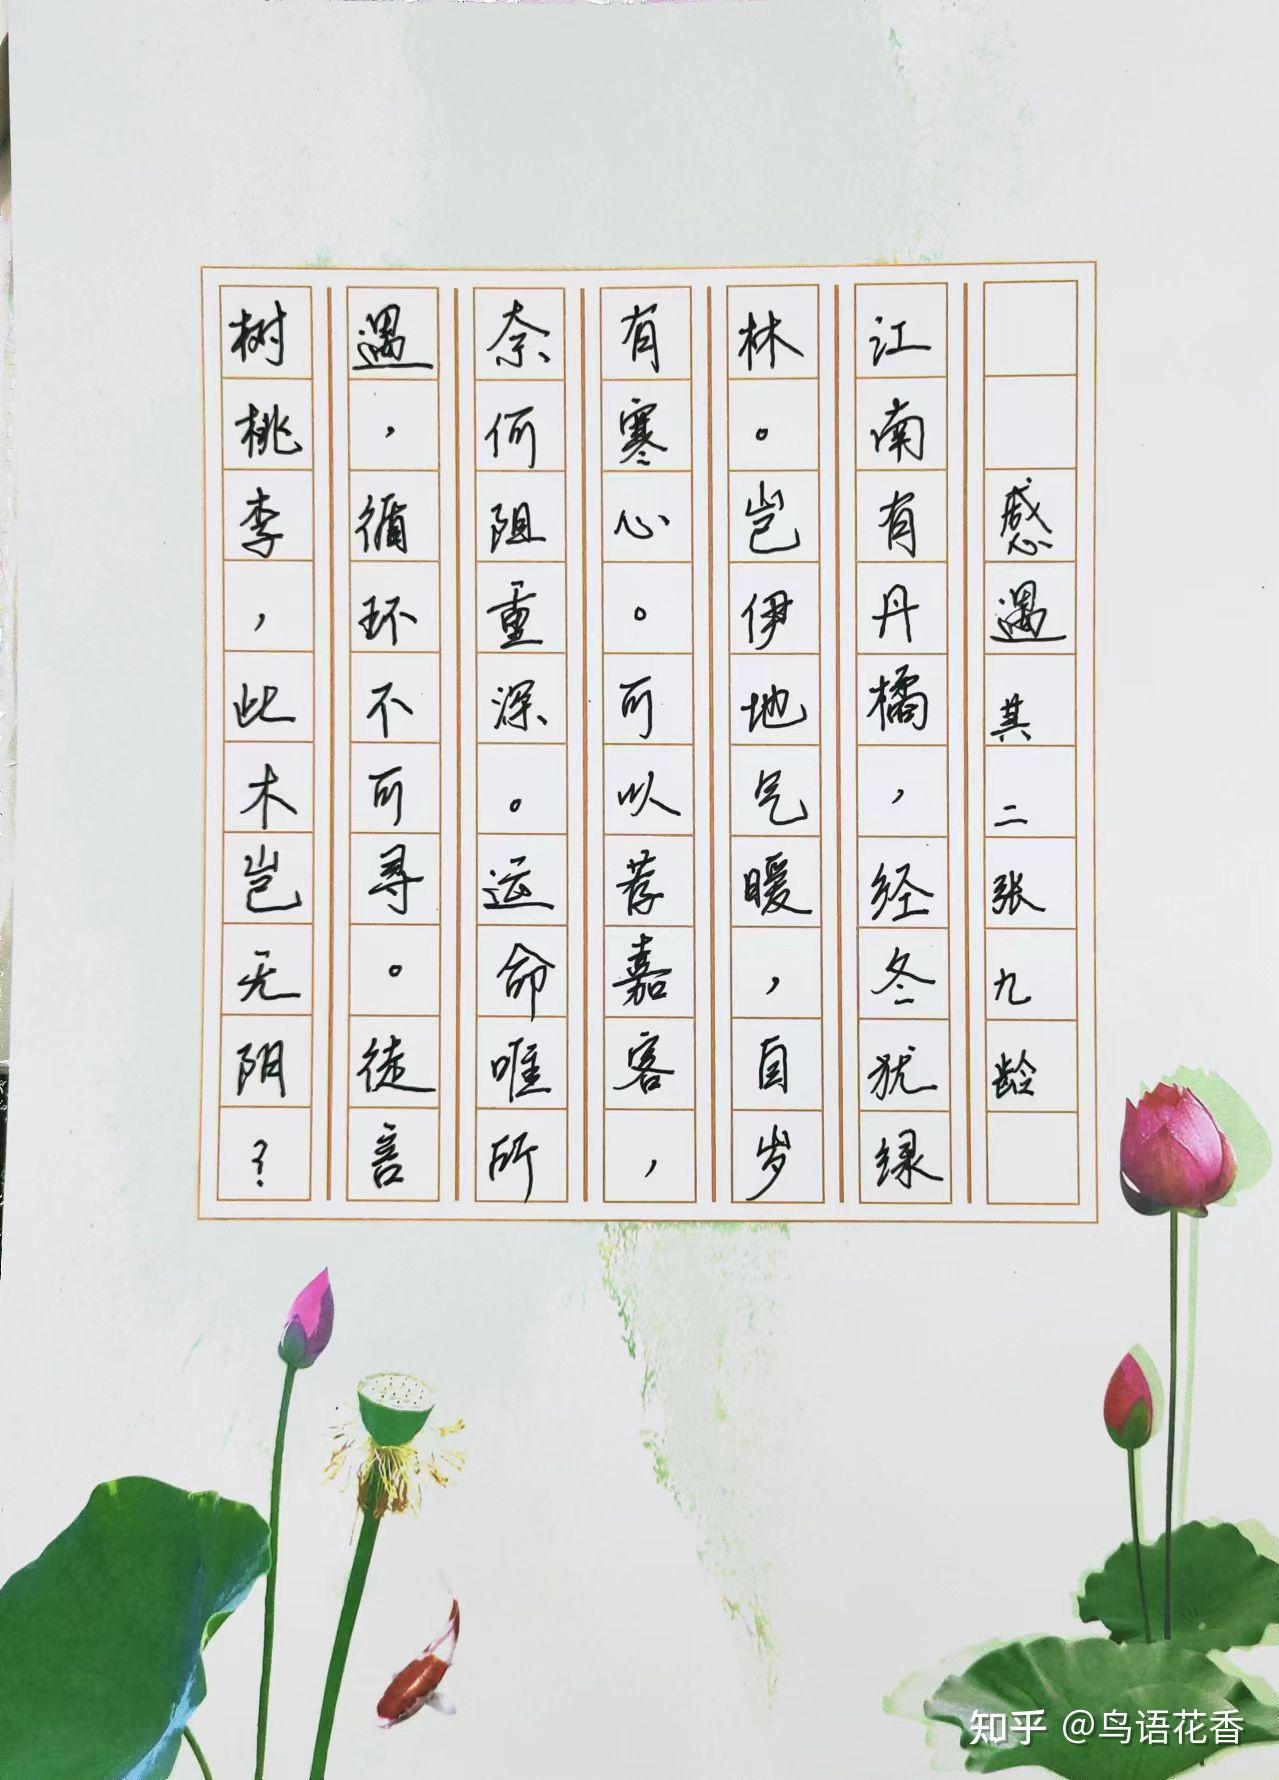 感遇其二张九龄
江南有丹橘，经冬犹绿
林。岂伊地气暖，自岁
有寒心。可以荐嘉客，
奈何阻重深。运命唯所
遇，循环不可寻。徒言
树桃李，此木岂无阴？
知乎 @鸟语花香